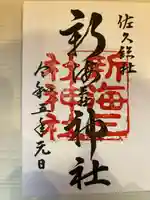 佐久総社
新海神社
新海三
社神社
令和五年元日